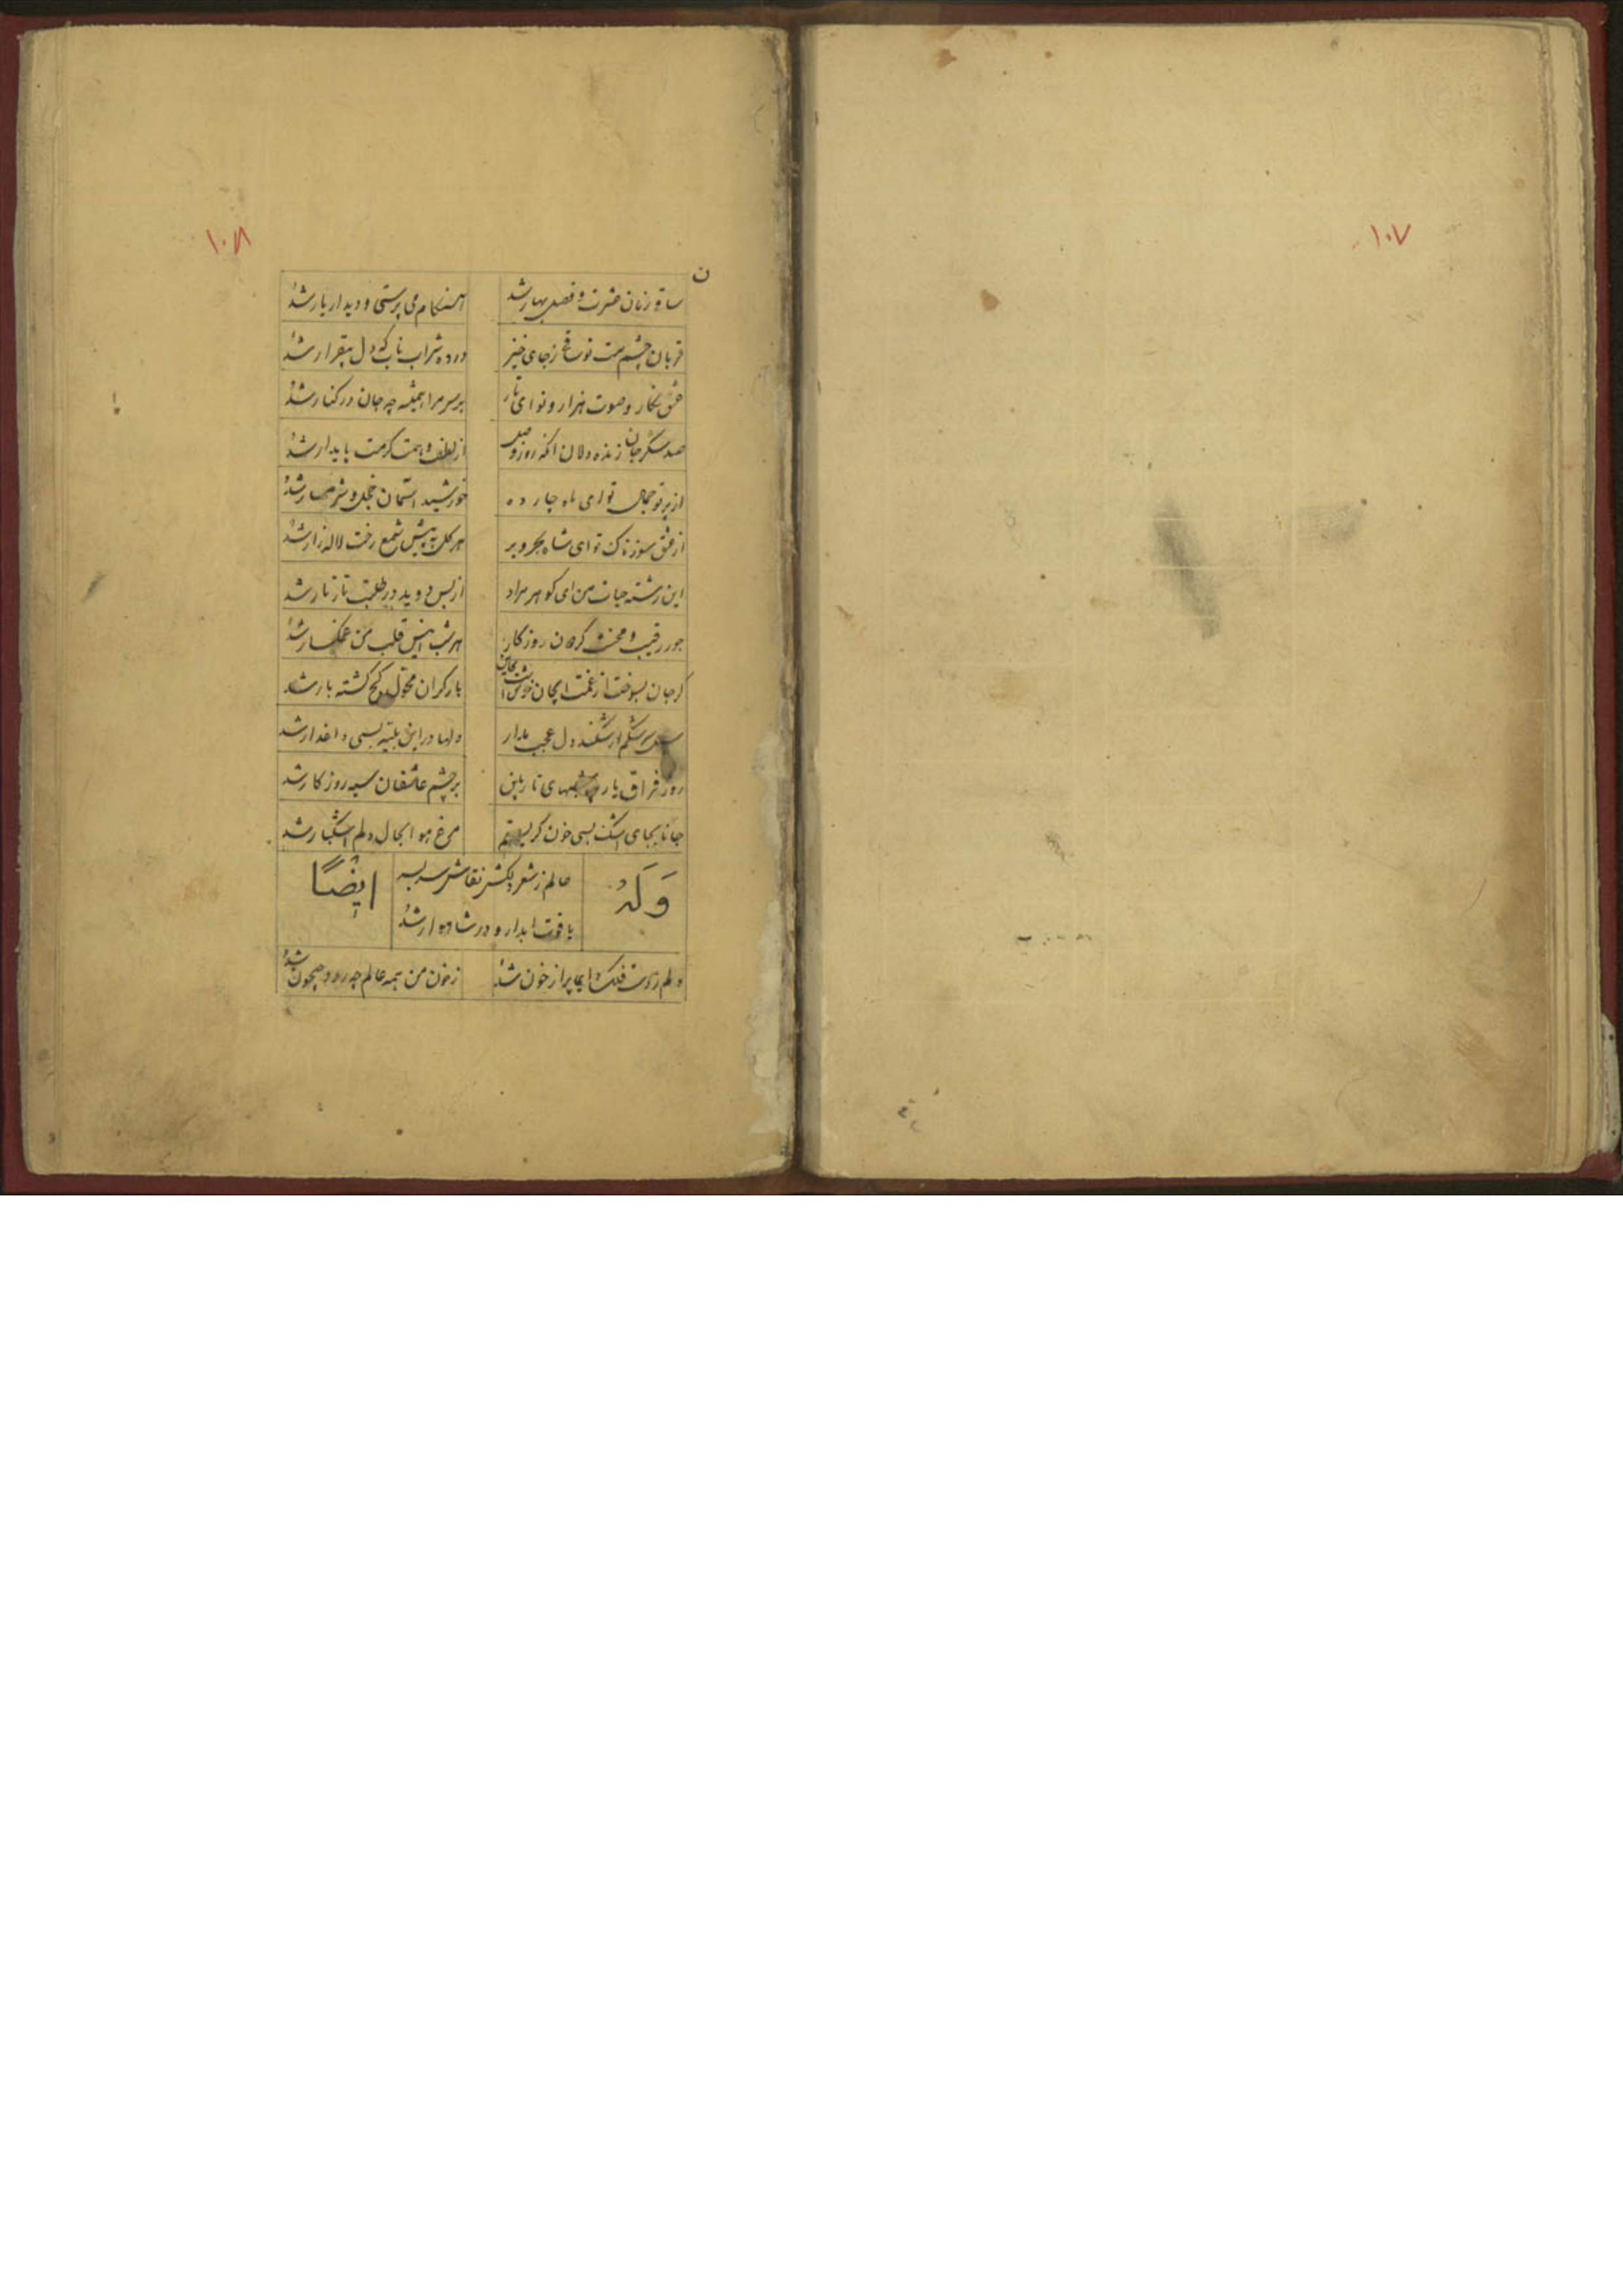 ۱۰۷
۱۰۸
ن
ساقی زمان عشرت و فصل بهار شد هنکام می پرستی و دیدار یار شد
قربان چشم مست تو ساقی ز جای خیز درده شراب ناب که دل بیقرار شد
عشق نکار و صوت هزار و نوای تار بر سر مرا همیشه چه جان در کنار شد
صد شکر جان زنده دلان انکه روز وصل از لطف و همت کرمت پایدار شد
از پرتو جمال تو ای ماه چارده خورشید اسمان خجل و شرمسار شد
از عشق سوزناک تو ای شاه بحر و بر هر کل به پیش شمع رخت لاله زار شد
این رشته حیات من ای کوهر مراد از بس دوید در طلبت تار تار شد
جور رقیب و محنت کردون روزکار هر شب انیس قلب من غمکسار شد
کر جان بسوخت از غمت ایجان بار کران کج کشته بار شد
سرشکم ار شکند دل عجب مدار دلها در این بلیه بسی داغدار شد
روز فراق یار شبهای تار بین بر چشم عاشقان سیه روزکار شد
جانا بجای اشک بسی خون کریستم مرغ هوا بحال دلم اشکبار شد
وَلَهُ
عالم ز شعر دلکش نقاش سر بسر
یاقوت ابدار و در شاهوار شد
ایضًا
دلم ز دست فلک پر از خون شد ز خون من همه عالم چه رود جیحون شد